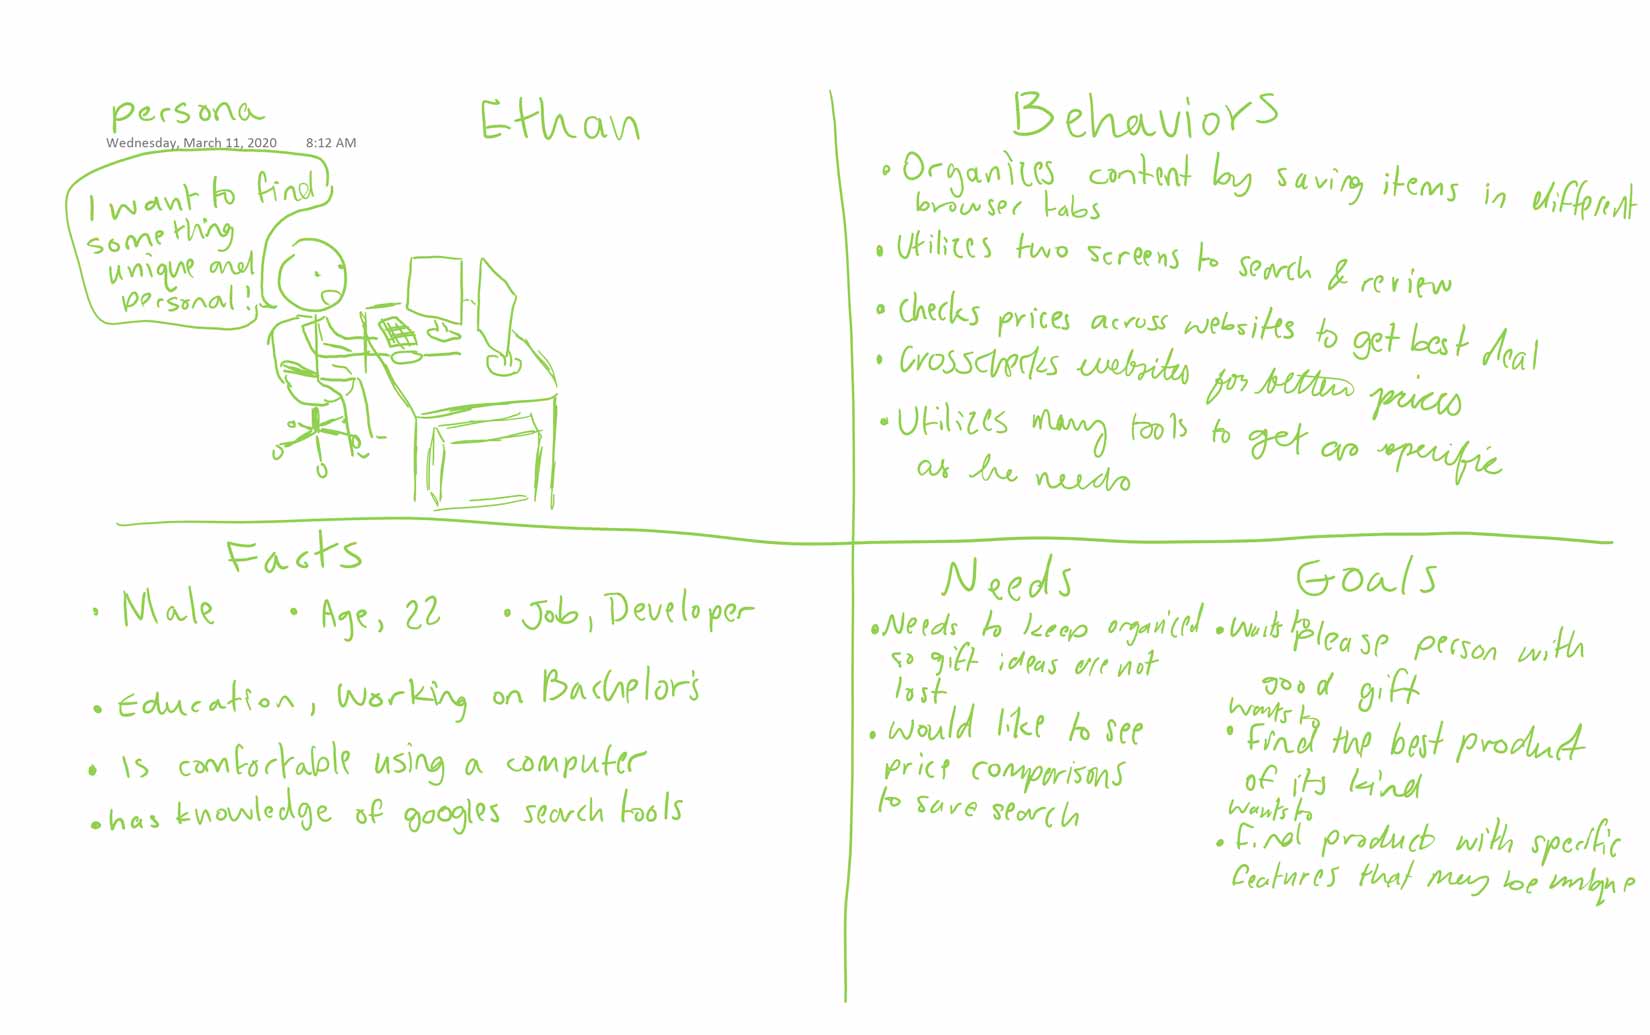 persona
Wednesday, March 11, 2020 8:12 AM
Ethan
I want to find
something
unique and
personal!
Behaviors
• Organizes content by saving items in different
browser tabs
• Utilizes two screens to search & review
• Checks prices across websites to get best deal
• Crosschecks websites for better prices
• Utilizes many tools to get as specific
as he needs
Facts
• Male • Age, 22 • Job, Developer
• Education, Working on Bachelor's
• Is comfortable using a computer
• has knowledge of googles search tools
Needs
• Needs to keep organized
so gift ideas are not
lost
• would like to see
price comparisons
to save search
Goals
• wants to please person with
good gift
wants to
• Find the best product
of its kind
wants to
• Find product with specific
features that may be unique